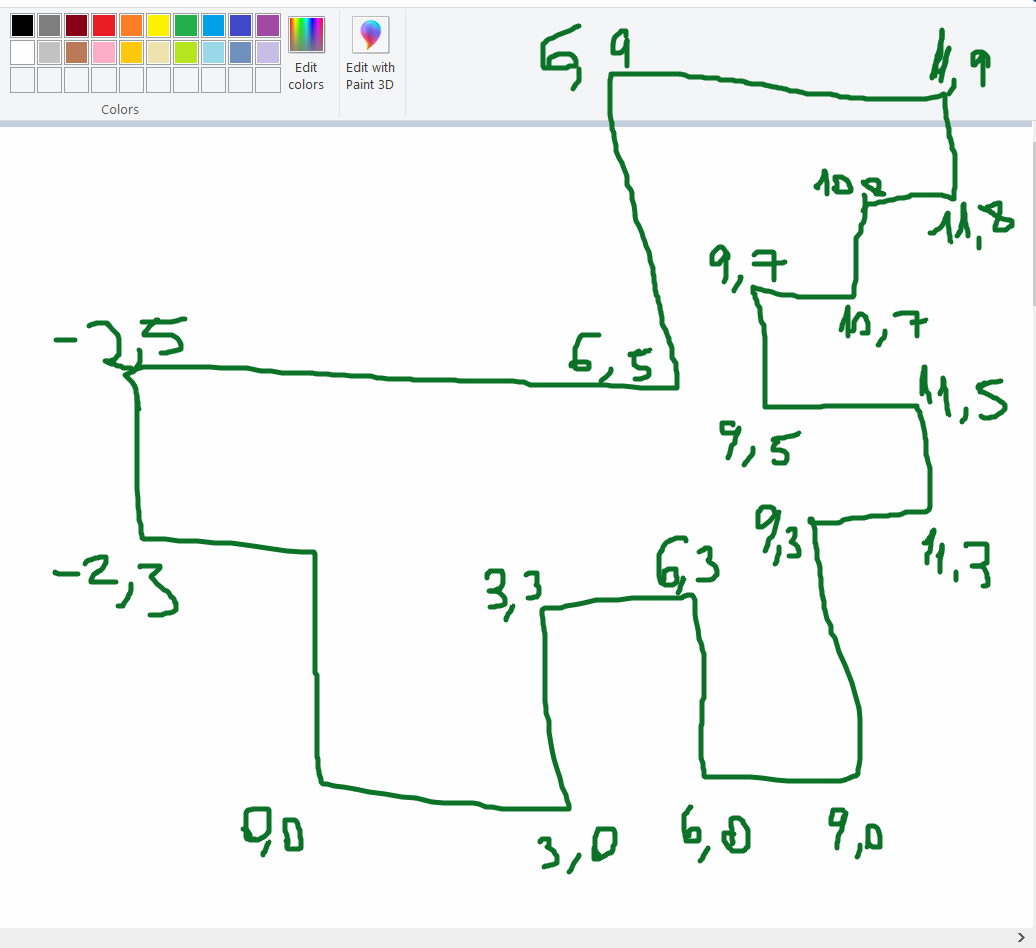 Edit colors
Edit with Paint 3D
Colors
6, 9
11, 9
10 8
11, 8
9, 7
10, 7
-2, 5
6, 5
11, 5
9, 5
9, 3
11, 3
-2, 3
3, 3
6, 3
0, 0
3, 0
6, 0
9, 0